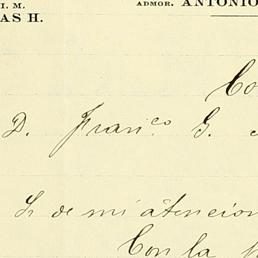 I. M.
ADMOR. ANTONIO
AS H.
Co
D. Franco. G.
Sr de mi atencion
Con la